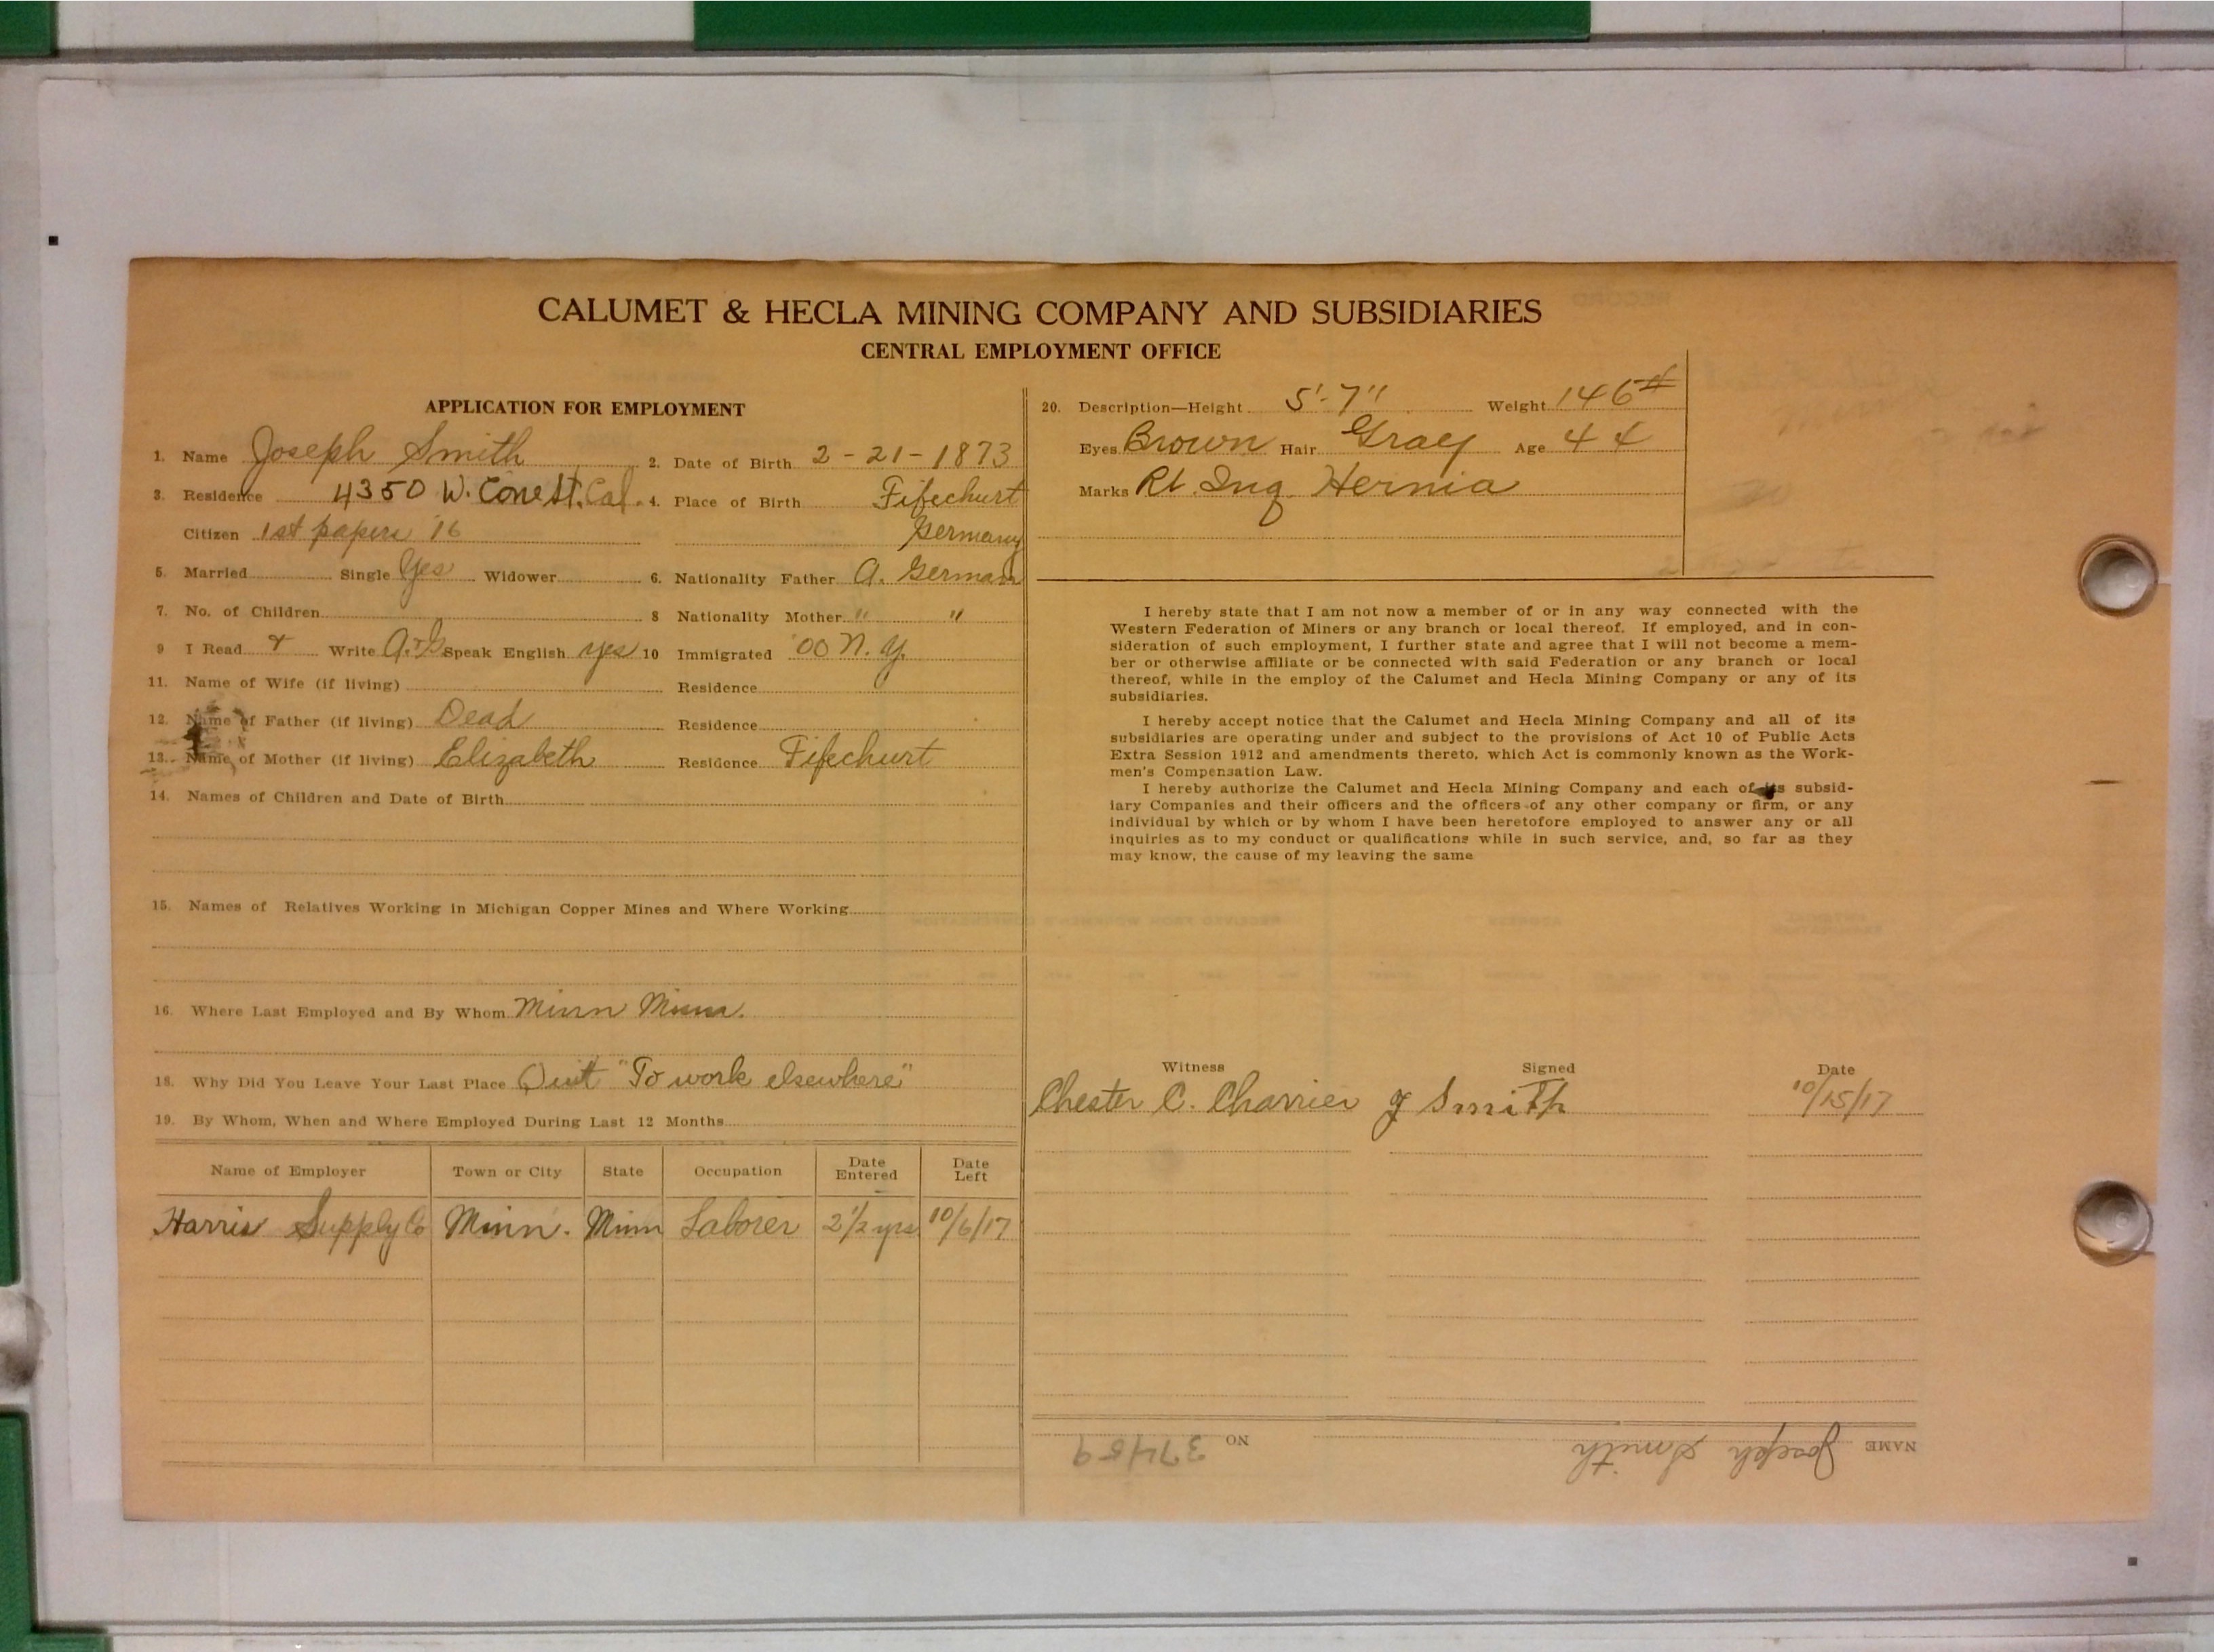 CALUMET & HECLA MINING COMPANY AND SUBSIDIARIES
CENTRAL EMPLOYMENT OFFICE
APPLICATION FOR EMPLOYMENT
1. Name Joseph Smith 2. Date of Birth 2-21-1873
3. Residence 4350 W. Cone St. Cal. 4. Place of Birth Fifechurt
Citizen 1st papers '16 Germany
5. Married Single Yes Widower 6. Nationality Father A. German
7. No. of Children 8 Nationality Mother " "
9 I Read & Write A.+G Speak English yes 10 Immigrated '00 N.Y.
11. Name of Wife (if living) Residence
12. Name of Father (if living) Dead Residence
13. Name of Mother (if living) Elizabeth Residence Fifechurt
14. Names of Children and Date of Birth
15. Names of Relatives Working in Michigan Copper Mines and Where Working
16. Where Last Employed and By Whom Minn Minn.
18. Why Did You Leave Your Last Place Quit "To work elsewhere"
19. By Whom, When and Where Employed During Last 12 Months
Name of Employer Town or City State Occupation Date Entered Date Left
Harris Supply Co Minn. Minn Laborer 2 1/2 yrs 10/6/17
20. Description—Height 5'-7" Weight 146#
Eyes Brown Hair Gray Age 44
Marks Rt. Ing. Hernia
I hereby state that I am not now a member of or in any way connected with the
Western Federation of Miners or any branch or local thereof. If employed, and in con-
sideration of such employment, I further state and agree that I will not become a mem-
ber or otherwise affiliate or be connected with said Federation or any branch or local
thereof, while in the employ of the Calumet and Hecla Mining Company or any of its
subsidiaries.
I hereby accept notice that the Calumet and Hecla Mining Company and all of its
subsidiaries are operating under and subject to the provisions of Act 10 of Public Acts
Extra Session 1912 and amendments thereto, which Act is commonly known as the Work-
men's Compensation Law.
I hereby authorize the Calumet and Hecla Mining Company and each of its subsid-
iary Companies and their officers and the officers of any other company or firm, or any
individual by which or by whom I have been heretofore employed to answer any or all
inquiries as to my conduct or qualifications while in such service, and, so far as they
may know, the cause of my leaving the same
Witness Signed Date
Chester C. Charrier J Smith 10/15/17
NAME Joseph Smith NO 37459